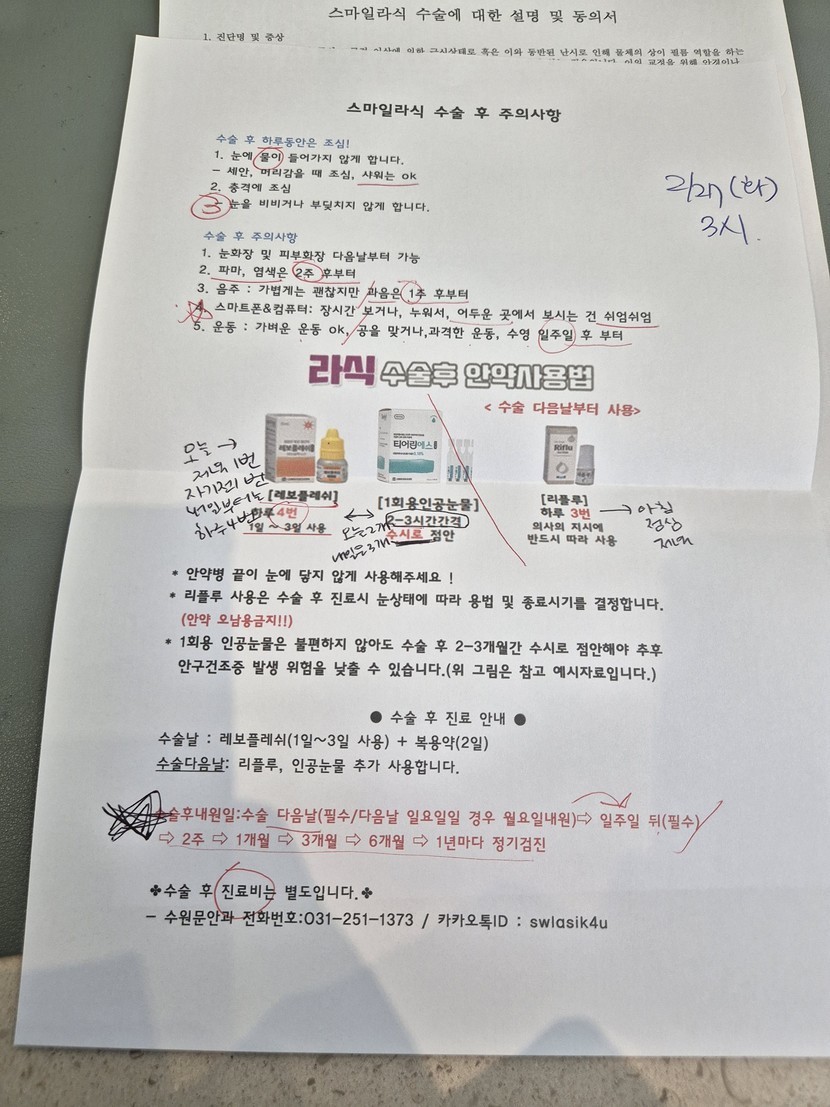 스마일라식 수술에 대한 설명 및 동의서
1. 진단명 및 증상
이상에 의한 굴절상태로 혹은 이와 동반된 난시로 인해 물체의 상이 필름 역할을 하는
스마일라식 수술 후 주의사항
수술 후 하루동안은 조심!
1. 눈에 물이 들어가지 않게 합니다.
- 세안, 머리감을 때 조심, 샤워는 ok
2. 충격에 조심
3
- 눈을 비비거나 부딪치지 않게 합니다.
2/27 (화)
3시.
수술 후 주의사항
1. 눈화장 및 피부화장 다음날부터 가능
2. 파마, 염색은 2주 후부터
3. 음주 : 가볍게는 괜찮지만 과음은 1주 후부터
4. 스마트폰&컴퓨터: 장시간 보거나, 누워서, 어두운 곳에서 보시는 건 쉬엄쉬엄
5. 운동 : 가벼운 운동 ok, 공을 맞거나,과격한 운동, 수영 일주일 후 부터
라식 수술후 안약사용법
< 수술 다음날부터 사용>
레보플레쉬
티어링에스
Riflu
오늘 →
저녁 1번
자기전 1번
내일부터는
하루4번
[레보플레쉬]
하루 4번
1일 ~ 3일 사용
오늘 2개
내일은 3개
[1회용인공눈물]
2-3시간간격
수시로 점안
[리플루]
하루 3번
의사의 지시에
반드시 따라 사용
아침
점심
저녁
* 안약병 끝이 눈에 닿지 않게 사용해주세요 !
* 리플루 사용은 수술 후 진료시 눈상태에 따라 용법 및 종료시기를 결정합니다.
(안약 오남용금지!!)
* 1회용 인공눈물은 불편하지 않아도 수술 후 2-3개월간 수시로 점안해야 추후
안구건조증 발생 위험을 낮출 수 있습니다.(위 그림은 참고 예시자료입니다.)
● 수술 후 진료 안내 ●
수술날 : 레보플레쉬(1일~3일 사용) + 복용약(2일)
수술다음날: 리플루, 인공눈물 추가 사용합니다.
수술후내원일:수술 다음날(필수/다음날 일요일일 경우 월요일내원)⇨ 일주일 뒤(필수)
⇨ 2주 ⇨ 1개월 ⇨ 3개월 ⇨ 6개월 ⇨ 1년마다 정기검진
✤수술 후 진료비는 별도입니다.✤
- 수원문안과 전화번호:031-251-1373 / 카카오톡ID : swlasik4u